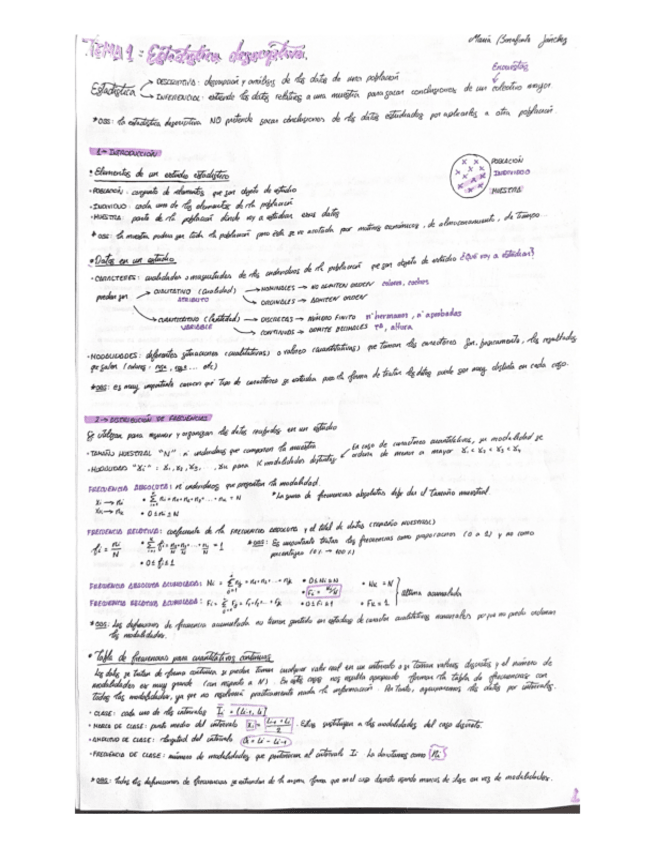 TEMA 1: Estadística descriptiva.
María Benafinte Sánchez
Encuestas
Estadística
DESCRIPTIVA: descripción y análisis de los datos de una población
INFERENCIAL: extiende los datos relativos a una muestra para sacar conclusiones de un colectivo mayor
* OBS: la estadística descriptiva NO pretende sacar conclusiones de los datos estudiados por aplicarlos a otra población.
1.- INTRODUCCIÓN
• Elementos de un estudio estadístico
- POBLACIÓN: conjunto de elementos que son objeto de estudio
- INDIVIDUO: cada uno de los elementos de la población
- MUESTRA: parte de la población donde voy a estudiar esos datos
POBLACIÓN
INDIVIDUO
MUESTRA
* OBS: la muestra podría ser toda la población pero ésta se ve acotada por motivos económicos, de almacenamiento, de tiempo...
• Datos en un estudio
- CARACTERES: cualidades o magnitudes de los individuos de la población que son objeto de estudio ¿Qué voy a estudiar?
pueden ser
CUALITATIVO (Cualidad)
ATRIBUTO
NOMINALES → NO ADMITEN ORDEN
ORDINALES → ADMITEN ORDEN
CUANTITATIVO (Cantidad)
VARIABLE
DISCRETAS → NÚMERO FINITO nº hermanos, nº aprobadas
CONTINUOS → ADMITE DECIMALES Tª, altura
- MODALIDADES: diferentes situaciones (cualitativas) o valores (cuantitativas) que toman los caracteres
* OBS: es muy importante conocer qué tipo de caracteres se estudia pues la forma de tratar los datos puede ser muy distinta en cada caso.
2.- DISTRIBUCIÓN DE FRECUENCIAS
Se utilizan para resumir y organizar los datos recogidos en un estudio
- TAMAÑO MUESTRAL "N": nº individuos que componen la muestra
- MODALIDAD "xi": x1, x2, x3, ..., xk para k modalidades distintas
En caso de caracteres cuantitativos, su modalidad se ordena de menor a mayor x1 < x2 < x3 < x4
FRECUENCIA ABSOLUTA: nº individuos que presentan la modalidad.
xi → ni
xk → nk
• 0 ≤ ni ≤ N
* La suma de frecuencias absolutas debe dar el tamaño muestral.
FRECUENCIA RELATIVA: cociente de la FRECUENCIA ABSOLUTA y el total de datos (TAMAÑO MUESTRAL)
fi = ni/N
• 0 ≤ fi ≤ 1
* OBS: Es importante tratar las frecuencias como proporciones (0 a 1) y no como porcentajes (0% → 100%)
FRECUENCIA ABSOLUTA ACUMULADA: Ni
• 0 ≤ Ni ≤ N
• Nk = N
FRECUENCIA RELATIVA ACUMULADA: Fi
• Fi = Ni/N
• 0 ≤ Fi ≤ 1
• Fk = 1
última acumulada
* OBS: Las definiciones de frecuencia acumulada no tienen sentido en estudios de caracter cualitativos nominales porque no puedo ordenar las modalidades.
• Tabla de frecuencias para cuantitativos continuos
Los datos se tratan de forma continua si pueden tomar cualquier valor real en un intervalo o si toman valores discretos y el número de
modalidades es muy grande (con respecto a N). En este caso no resulta apropiado formar la tabla de frecuencias con
todas las modalidades, ya que no resumiría prácticamente nada la información. Por tanto, agrupamos los datos por intervalos.
- CLASE: cada uno de los intervalos Ii = [Li-1, Li]
- MARCA DE CLASE: punto medio del intervalo xi = (Li-1 + Li)/2. Ellas sustituyen a las modalidades del caso discreto.
- AMPLITUD DE CLASE: longitud del intervalo ai = Li - Li-1
- FRECUENCIA DE CLASE: número de modalidades que pertenecen al intervalo Ii. La denotamos como ni
* OBS: todas las definiciones de frecuencias se extienden de la misma forma que en el caso discreto usando marcas de clase en vez de modalidades.
1